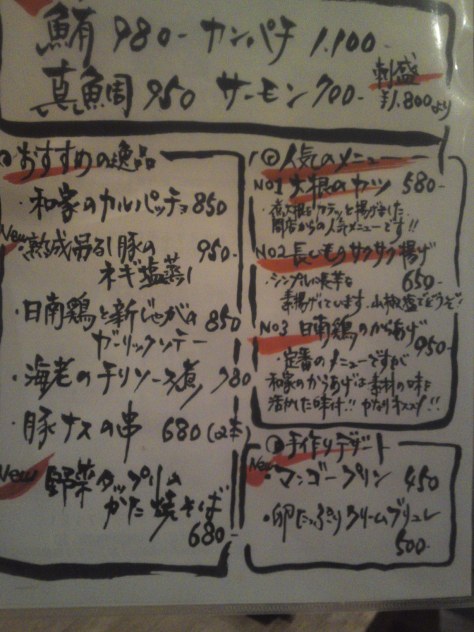 鮪 980- カンパチ 1.100-
真鯛 950 サーモン 700-
刺盛
¥1.800より
おすすめの逸品
・和家のカルパッチョ 850
New
・熟成吊るし豚の 950-
ネギ塩蒸し
・日南鶏と新じゃがの 850
ガーリックソテー
・海老のチリソース煮 780
・豚ナスの串 680 (2本)
New
野菜タップリの
かた焼そば
680-
人気のメニュー
No1 大根のカツ 580-
・煮大根をカラッと揚げました
開店からの人気メニューです!!
No2 長いものサクサク揚げ
650-
・シンプルに長芋を
素揚げしています。山椒塩でどうぞ!
No3 日南鶏のからあげ
950-
・定番のメニューですが
和家のからあげは素材の味を
活かした味付!! かなりオススメ!!
手作りデザート
New
・マンゴープリン 450
・卵たっぷりクリームブリュレ
500-